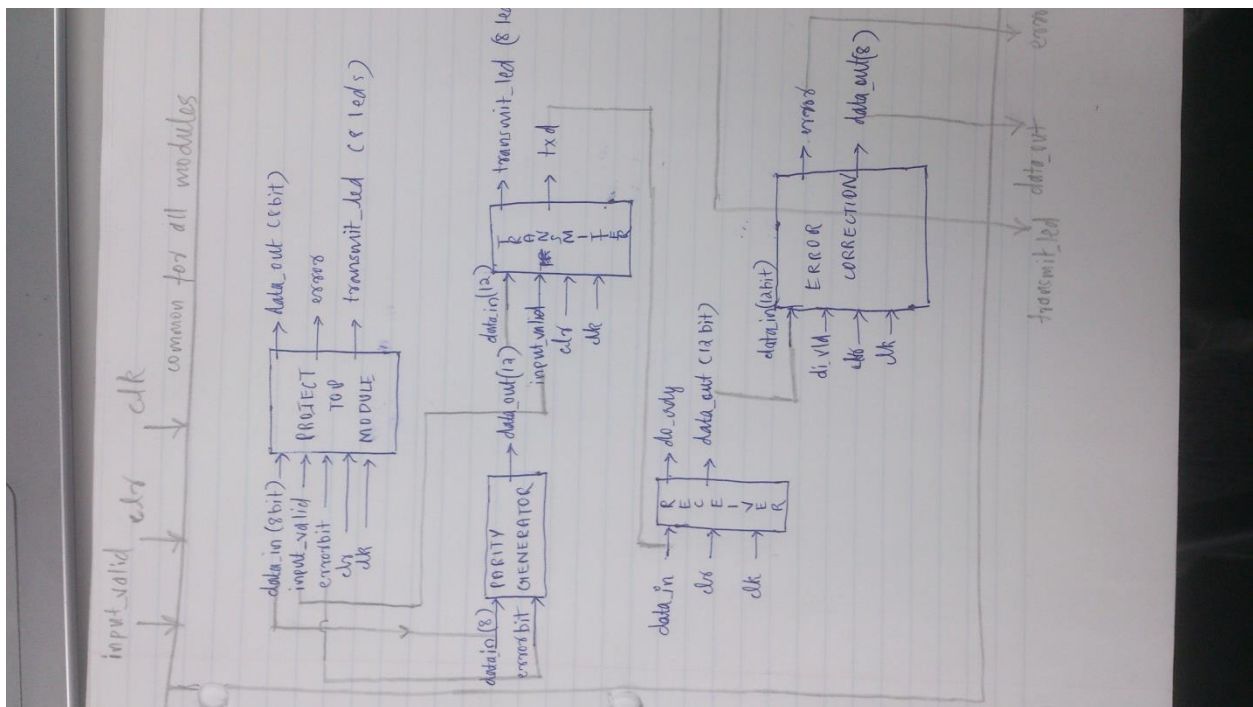 input_valid clr clk
common for all modules
data_in (8bit)
input_valid
errorbit
clr
clk
PROJECT
TOP
MODULE
data_out (8bit)
error
transmit_led (8 leds)
datain(8)
errorbit
PARITY
GENERATOR
data_out(12)
datain(12)
input_valid
clr
clk
TRANSMITTER
transmit_led (8 led
txd
data_in
clr
clk
RECEIVER
do_rdy
data_out (12 bit)
data_in(12bit)
di_vld
clr
clk
ERROR
CORRECTION
error
data_out(8)
transmit_led data_out error